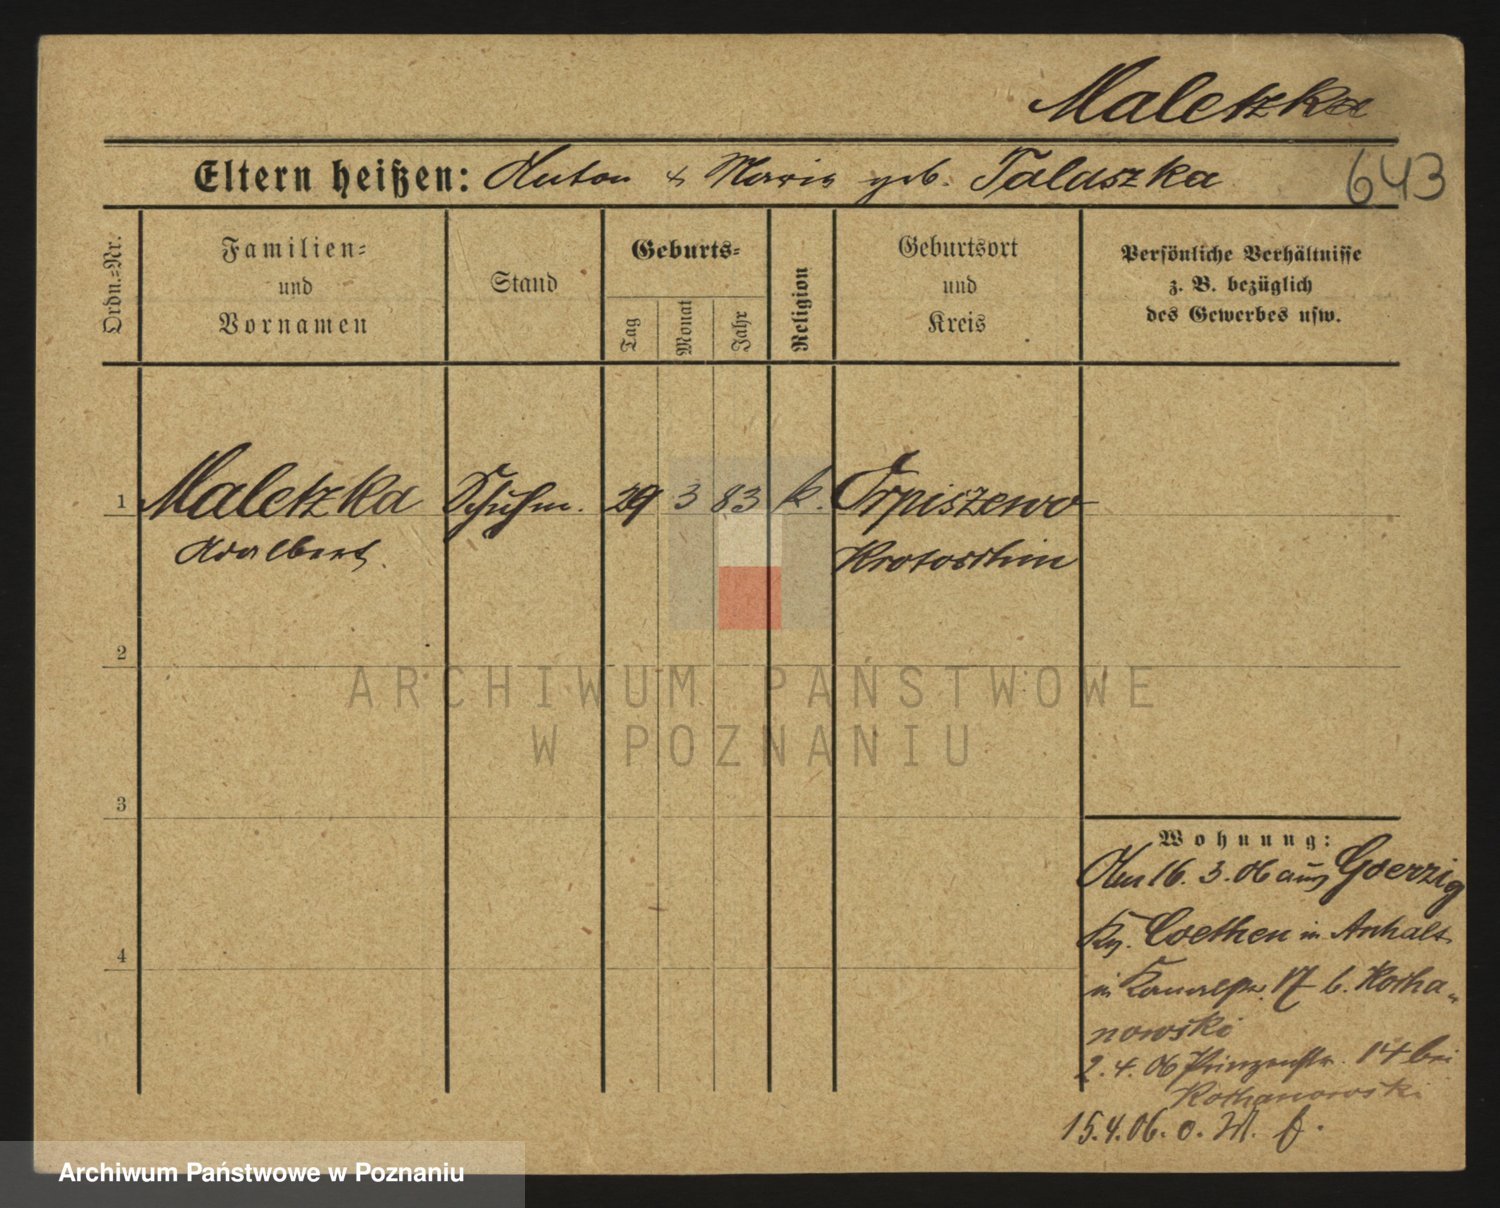 Maletzka
Eltern heißen: Anton & Maria geb. Talaszka
643
Ordn.=Nr.
Familien=
und
Vornamen
Stand
Geburts=
Tag
Monat
Jahr
Religion
Geburtsort
und
Kreis
Persönliche Verhältnisse
z. B. bezüglich
des Gewerbes usw.
1 Maletzka Schuhm. 29 3 83 k. Orpiszewo
Adalbert. Krotoschin
2
ARCHIWUM PAŃSTWOWE
W POZNANIU
3
Wohnung:
Am 16. 3. 06 aus Goerzig
Coethen in Anhalt
in 17 b. Rotha=
nowski
2. 4. 06 Prinzenstr. 14 bei
Rothanowski
15.4.06. o.
4
Archiwum Państwowe w Poznaniu